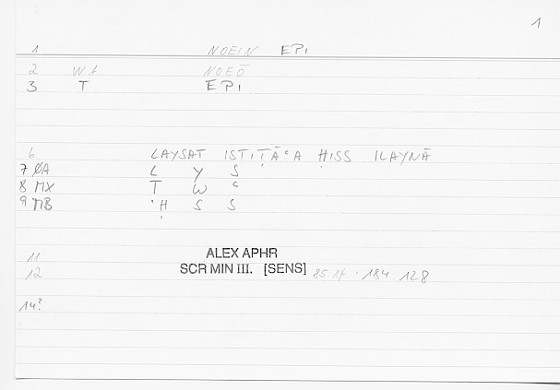 1
1 NOEIN EPI
2 WA NOEŌ
3 T EPI
6 LAYSAT ISTIṬĀʿA ḤISS ILAYNĀ
7 ØA L Y S
8 MX T W ʿ
9 MB ʾḤ S S
11 ALEX APHR
12 SCR MIN III. [SENS] 85.17 · 184 128
14?